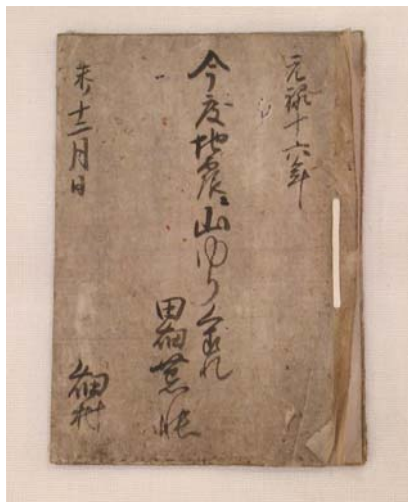 元禄十六年
今度地震山ゆりくつれ
田畑荒帳
未ノ十二月日
畑村